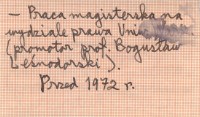 – Praca magisterska na
wydziale prawa Uni
(promotor prof. Bogusław
Leśnodorski).
Przed 1972 r.